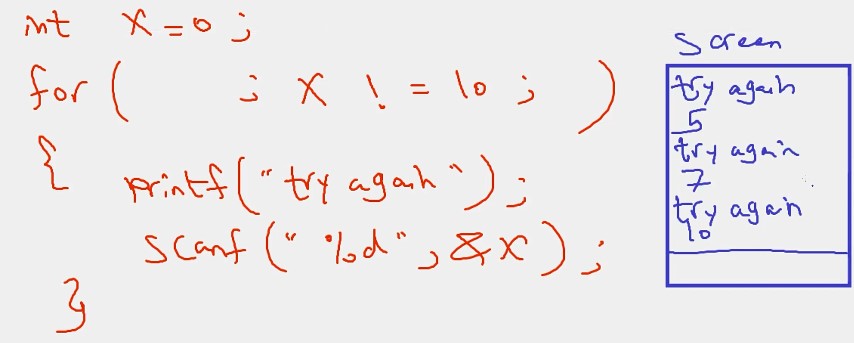 int x = 0 ;
for ( ; x ! = 10 ; )
{
printf ( " try again " ) ;
scanf ( " %d " , &x ) ;
}
screen
try again
5
try again
7
try again
10